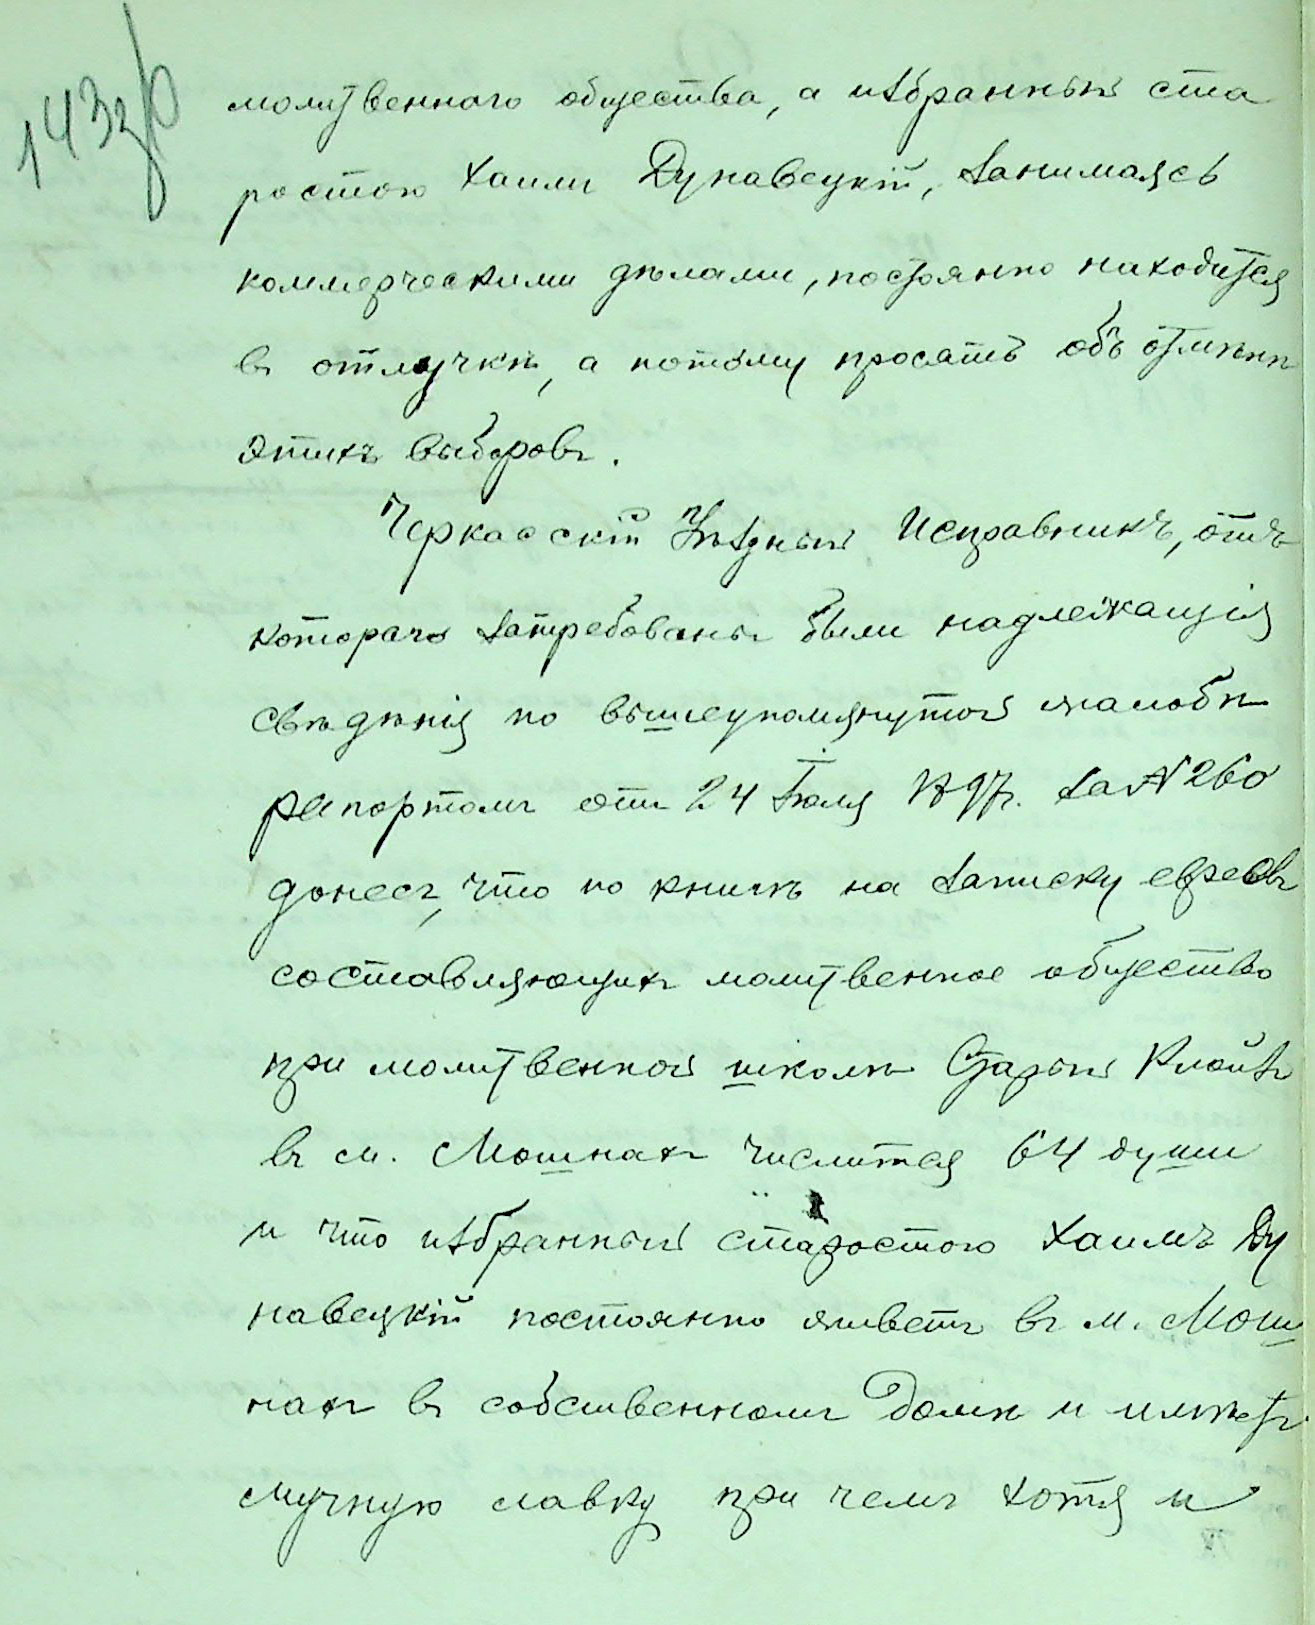 143 зв
молитвеннаго общества, а избранный ста
ростою Хаимъ Дунавецкій, занимаясь
коммерческими дѣлами, постоянно находится
въ отлучкѣ, а потому просятъ объ отмѣнѣ
этихъ выборовъ.
Черкасскій Уѣздный Исправникъ, отъ
котораго затребованы были надлежащія
свѣдѣнія по вышеупомянутой жалобѣ
рапортомъ отъ 24 Іюля 1897 г. за № 260
донесъ, что по книгѣ на записку евреевъ
составляющихъ молитвенное общество
при молитвенной школѣ Старый Клойзъ
въ м. Мошнахъ числится 64 души
и что избранный старостою Хаимъ Ду
навецкій постоянно живетъ въ м. Мош
нахъ въ собственномъ домѣ и имѣетъ
мучную лавку при чемъ хотя и